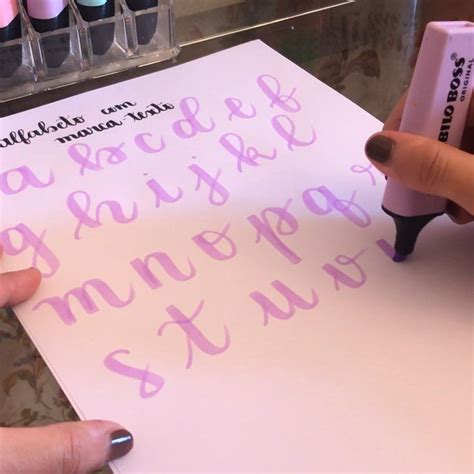 alfabeto com
marca texto
a b c d e f
g h i j k l
m n o p q r
s t u v
BOSS
ORIGINAL